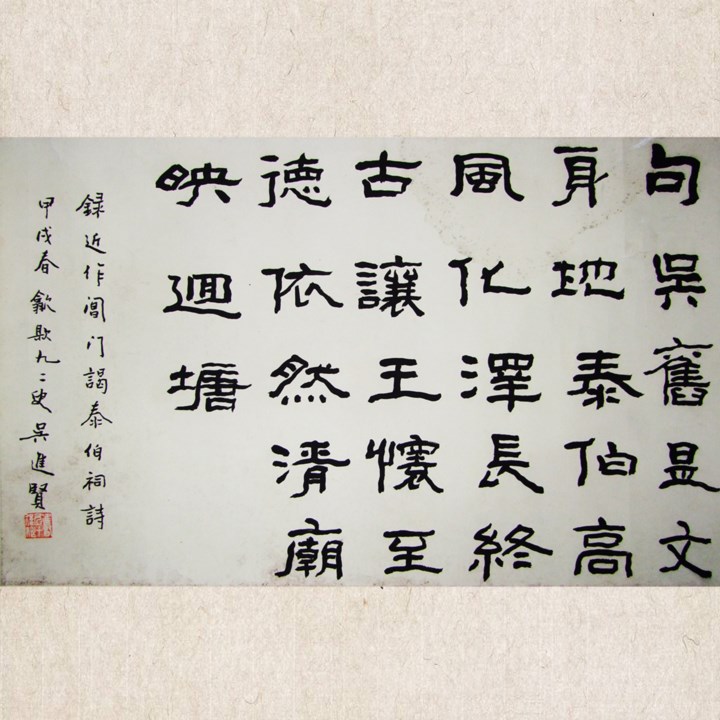 句吳舊是文
身地泰伯高
風化澤長終
古讓王懷至
德依然清廟
映迴塘
録近作閶门謁泰伯祠詩
甲戌春歙九二叟吳進賢